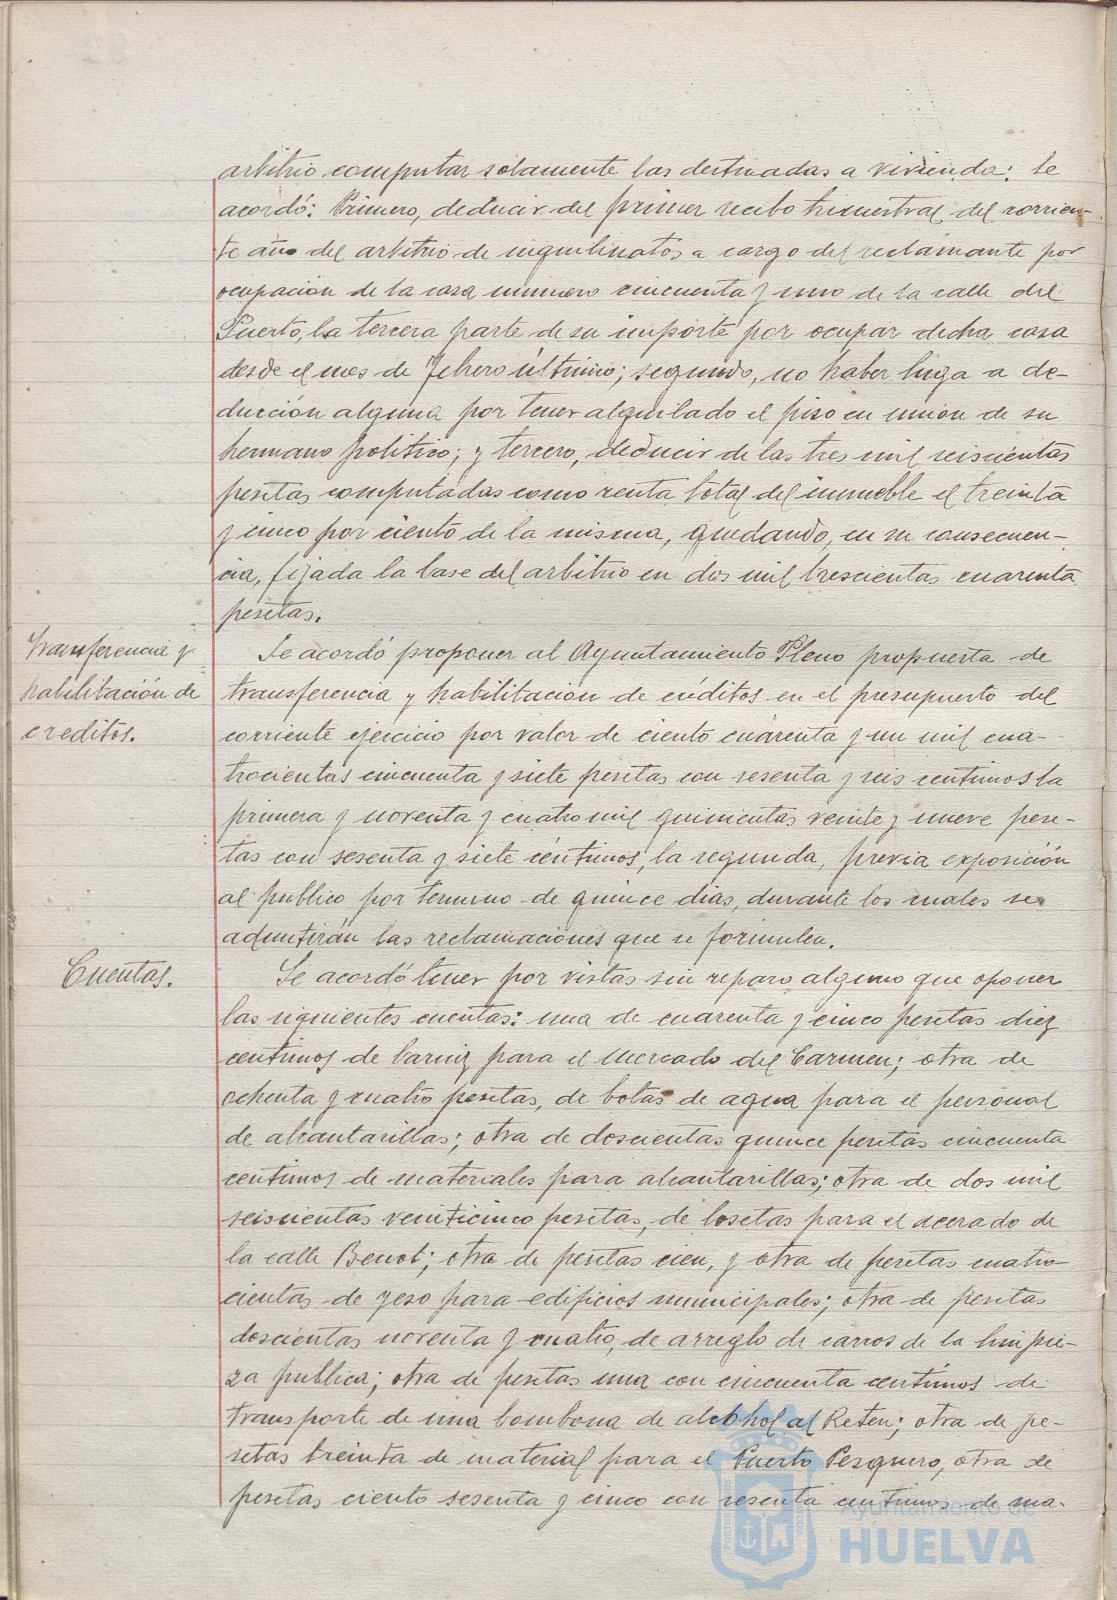 arbitrio computar solamente las destinadas a vivienda: se
acordó: Primero, deducir del primer recibo trimestral del corrien-
te año del arbitrio de inquilinatos a cargo del reclamante por
ocupación de la casa numero cincuenta y uno de la calle del
Puerto, la tercera parte de su importe por ocupar dicha casa
desde el mes de Febrero último; segundo, no haber luga a de-
ducción alguna por tener alquilado el piso en union de su
hermano politico; y tercero, deducir de las tres mil seiscientas
pesetas computadas como renta total del inmueble el treinta
y cinco por ciento de la misma, quedando, en su consecuen-
cia, fijada la base del arbitrio en dos mil trescientas cuarenta
pesetas.
Transferencia y
habilitación de
creditos.
Se acordó proponer al Ayuntamiento Pleno propuesta de
transferencia y habilitación de créditos en el presupuesto del
corriente ejercicio por valor de ciento cuarenta y un mil cua-
trocientas cincuenta y siete pesetas con sesenta y seis centimos la
primera y noventa y cuatro mil quinientas veinte y nueve pese-
tas con sesenta y siete céntimos, la segunda, previa exposición
al publico por termino de quince dias, durante los cuales se
admitirán las reclamaciones que se formulen.
Cuentas.
Se acordó tener por vistas sin reparo alguno que oponer
las siguientes cuentas: una de cuarenta y cinco pesetas diez
centimos de barniz para el Mercado del Carmen; otra de
ochenta y cuatro pesetas, de botas de agua para el personal
de alcantarillas; otra de doscientas quince pesetas cincuenta
centimos de materiales para alcantarillas; otra de dos mil
seiscientas veinticinco pesetas, de losetas para el acerado de
la calle Benot; otra de pesetas cien, y otra de pesetas cuatro-
cientas de yeso para edificios municipales; otra de pesetas
doscientas noventa y cuatro, de arreglo de carros de la limpie-
za publica; otra de pesetas una con cincuenta centimos de
transporte de una bombona de alcohol al Reten; otra de pe-
setas treinta de material para el Puerto Pesquero, otra de
pesetas ciento sesenta y cinco con sesenta centimos de ma-
Ayuntamiento de
HUELVA